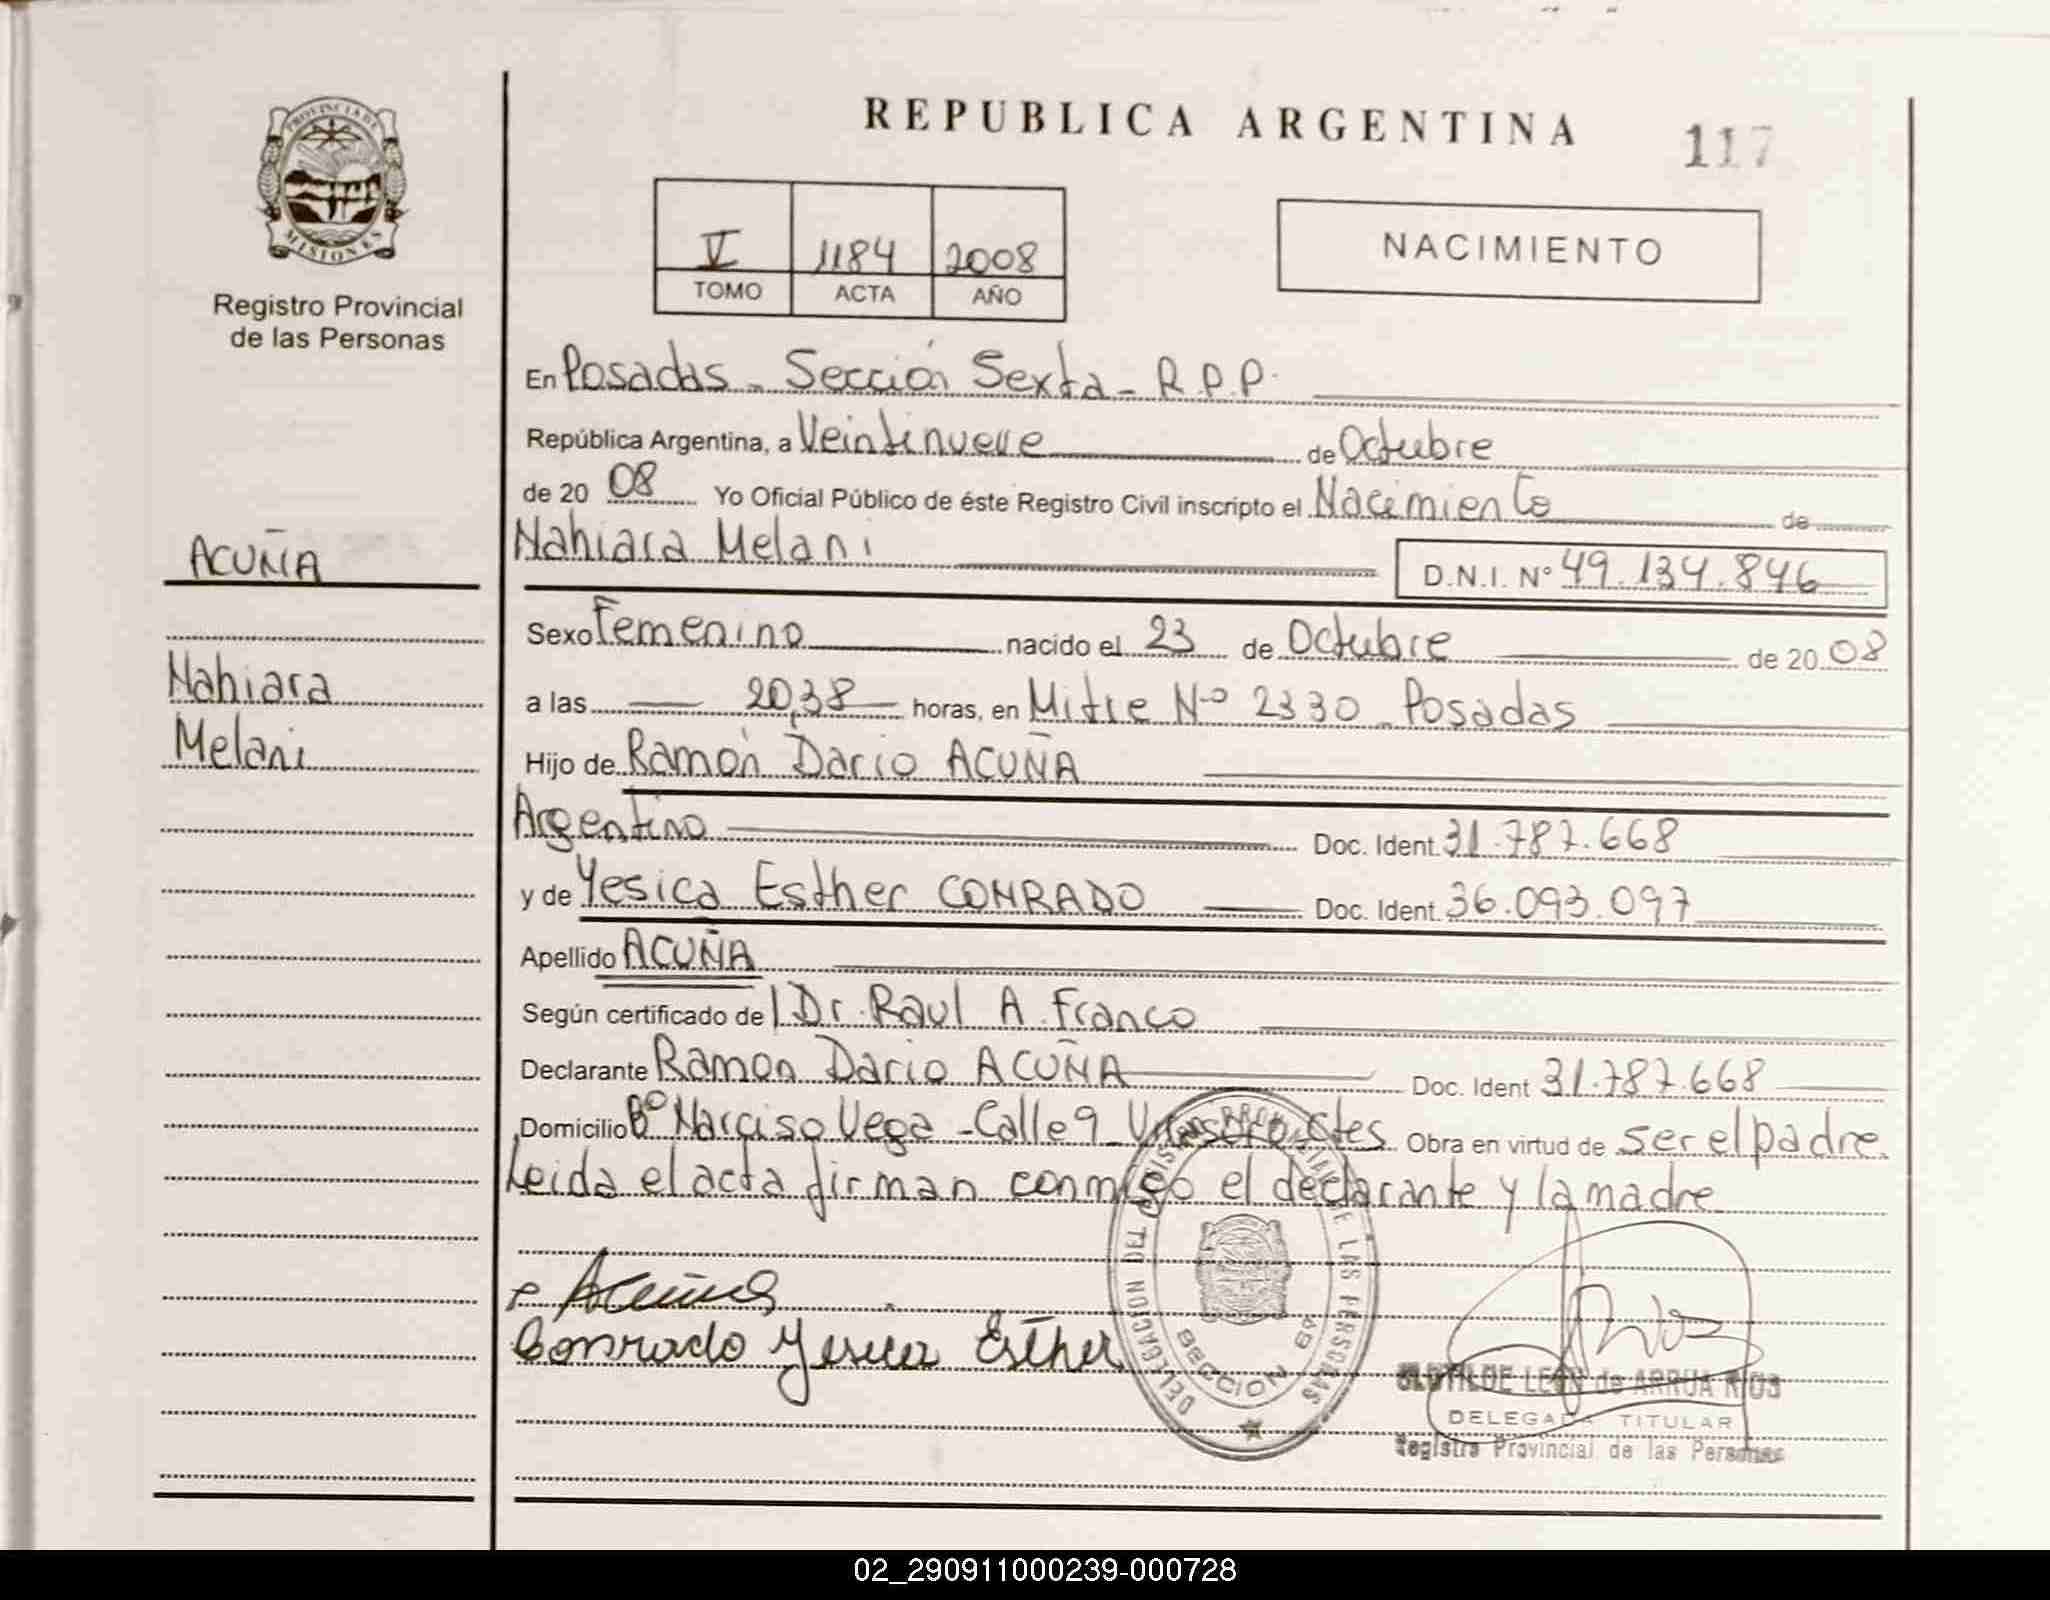 PROVINCIA DE
MISIONES
Registro Provincial
de las Personas
ACUÑA
Nahiara
Melani
REPUBLICA ARGENTINA
117
V 1184 2008
TOMO ACTA AÑO
NACIMIENTO
En Posadas - Sección Sexta - R.P.P.
República Argentina, a Veintinueve de Octubre
de 20 08 Yo Oficial Público de éste Registro Civil inscripto el Nacimiento de
Nahiara Melani D.N.I. Nº 49.134.846
Sexo Femenino nacido el 23 de Octubre de 20 08
a las 20,38 horas, en Mitre Nº 2330 - Posadas
Hijo de Ramón Dario ACUÑA
Argentino Doc. Ident. 31.787.668
y de Yesica Esther CONRADO Doc. Ident. 36.093.097
Apellido ACUÑA
Según certificado de l Dr. Raul A. Franco
Declarante Ramon Dario ACUÑA Doc. Ident 31.787.668
Domicilio Bº Narciso Vega - Calle 9 - Ctes Obra en virtud de ser el padre.
Leida el acta firman conmigo el declarante y la madre
Acuña
Conrado Yesica Esther
DELEGACION DEL REGISTRO PROVINCIAL DE LAS PERSONAS
SECCION 6ª
CLOTILDE LEON de ARRUA RIOS
DELEGADA TITULAR
Registro Provincial de las Personas
02_290911000239-000728